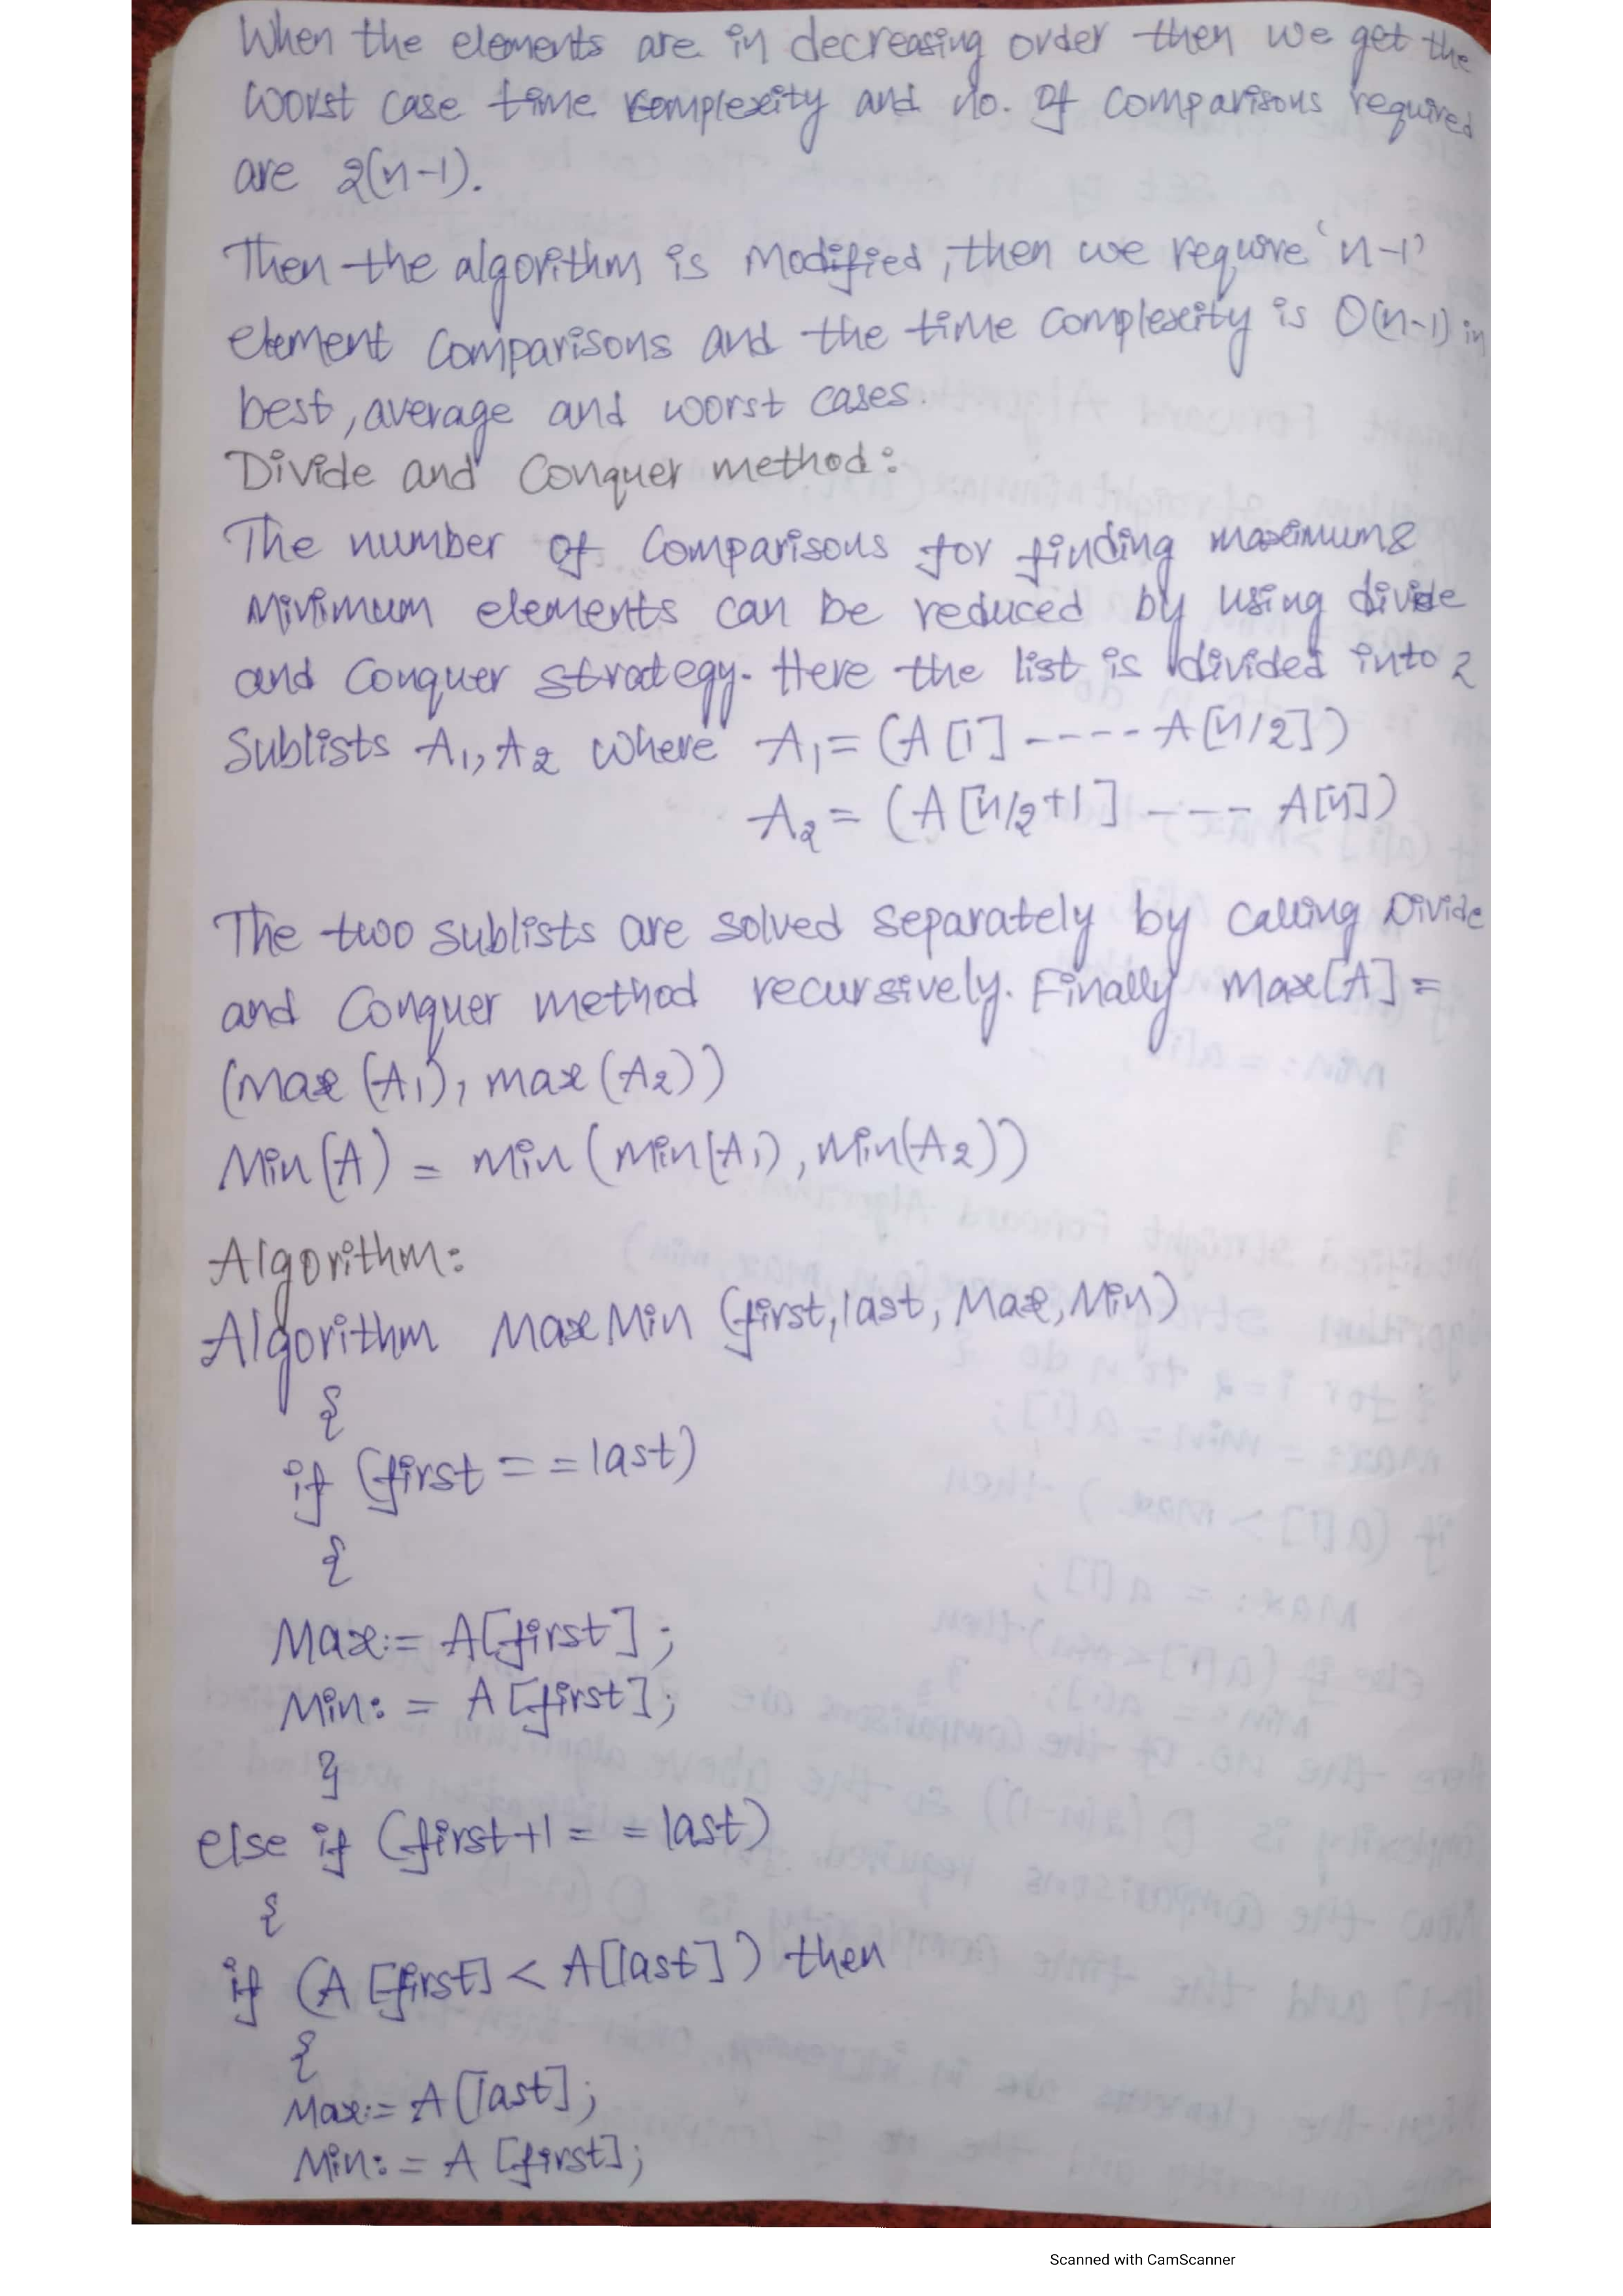 When the elements are in decreasing order then we get the
worst case time complexity and no. of comparisons required
are 2(n-1).
Then the algorithm is modified, then we require 'n-1'
element comparisons and the time complexity is O(n-1) in
best, average and worst cases.
Divide and Conquer method:
The number of comparisons for finding maximum &
minimum elements can be reduced by using divide
and conquer strategy. Here the list is divided into 2
Sublists A1, A2 where A1 = (A[1] ---- A[n/2])
A2 = (A[n/2+1] --- A[n])
The two sublists are solved separately by calling Divide
and Conquer method recursively. Finally Max[A] =
(Max (A1), max (A2))
Min(A) = min (Min(A1), Min(A2))
Algorithm:
Algorithm MaxMin (first, last, Max, Min)
{
if (first == last)
{
Max:= A[first];
Min:= A[first];
}
else if (first+1 == last)
{
if (A[first] < A[last]) then
{
Max:= A[last];
Min:= A[first];
Scanned with CamScanner